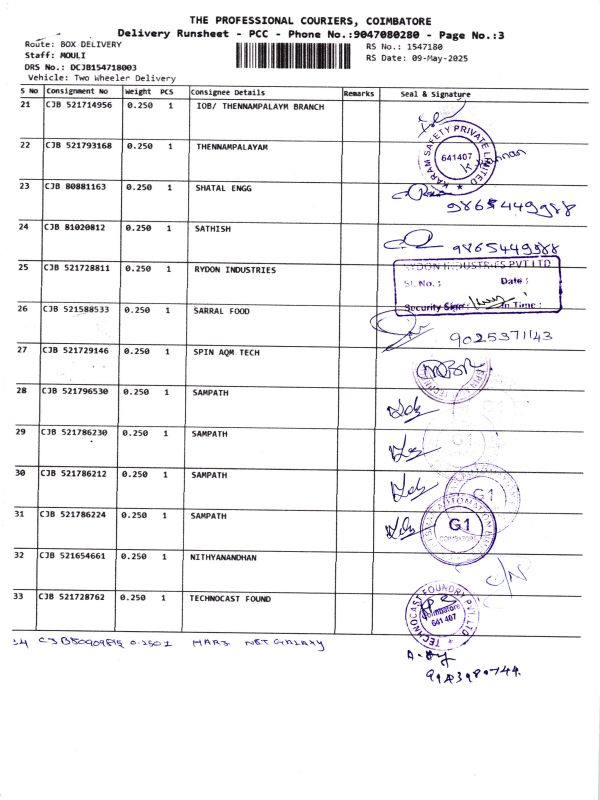 THE PROFESSIONAL COURIERS, COIMBATORE
Delivery Runsheet - PCC - Phone No.:9047080280 - Page No.:3
Route: BOX DELIVERY
RS No.: 1547180
Staff: MOULI
RS Date: 09-May-2025
DRS No.: DCJB154718003
Vehicle: Two Wheeler Delivery
S No Consignment No Weight PCS Consignee Details Remarks Seal & Signature
21 CJB 521714956 0.250 1 IOB/ THENNAMPALAYM BRANCH
22 CJB 521793168 0.250 1 THENNAMPALAYAM
KARAM SAFETY PRIVATE LIMITED
641407
23 CJB 80881163 0.250 1 SHATAL ENGG
9865449988
24 CJB 81020812 0.250 1 SATHISH
9865449988
25 CJB 521728811 0.250 1 RYDON INDUSTRIES
RYDON INDUSTRIES PVT LTD
Sl. No.: Date :
Security Sign: In Time :
26 CJB 521588533 0.250 1 SARRAL FOOD
9025371143
27 CJB 521729146 0.250 1 SPIN AQM TECH
28 CJB 521796530 0.250 1 SAMPATH
29 CJB 521786230 0.250 1 SAMPATH
G1
30 CJB 521786212 0.250 1 SAMPATH
G1
31 CJB 521786224 0.250 1 SAMPATH
G1
32 CJB 521654661 0.250 1 NITHYANANDHAN
33 CJB 521728762 0.250 1 TECHNOCAST FOUND
TECHNOCAST FOUNDRY PVT LTD
Coimbatore
641 407
34 0.250 1 MARS NET GALAXY